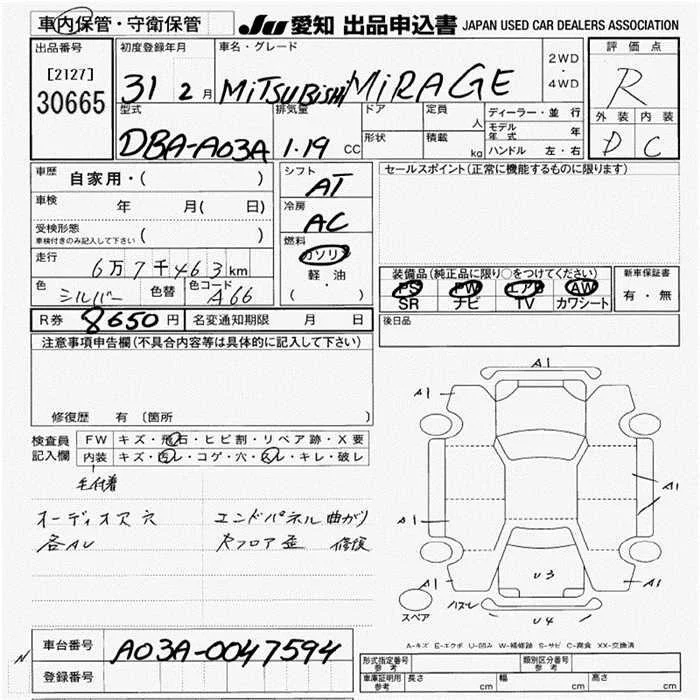 車内保管・守衛保管
JU 愛知 出品申込書 JAPAN USED CAR DEALERS ASSOCIATION
出品番号
[2127]
30665
初度登録年月
31 2月
車名・グレード
MiTSUBiSHi MiRAGE
2WD
・
4WD
評価点
R
外装 内装
D C
型式
DBA-A03A
排気量
1.19 CC
ドア
形状
定員
人
積載
kg
ディーラー・並行
モデル年式 年
ハンドル 左・右
車歴 自家用・( )
車検 年 月( 日)
受検形態
車検付きのみ記入して下さい ( )
走行
6万7千463km
色 シルバー 色替 色コード A66
シフト
AT
冷房
AC
燃料
ガソリン
軽・油
( ・ )
セールスポイント(正常に機能するものに限ります)
装備品(純正品に限り○をつけてください)
PS PW エアB AW
SR ナビ TV カワシート
新車保証書
有・無
後日品
R券 8650円 名変通知期限 月 日
注意事項申告欄(不具合内容等は具体的に記入して下さい)
修復歴 有 〔箇所
検査員
記入欄
FW キズ・飛石・ヒビ割・リペア跡・X要
内装 キズ・凹レ・コゲ・穴・スレ・キレ・破レ
毛付着
オーディオア穴 エンドパネル曲がり
各AU Rフロア歪 修復
A1
A1
A1
A1
A1
A1
A1
U3
U4
ハズレ
スペア
A-キズ E-エクボ U-凹み W-補修跡 S-サビ C-腐食 XX-交換済
車台番号 A03A-0047594
登録番号
形式指定番号
参考
類別区分番号
参考
車庫証明用
参考
長さ cm 幅 cm 高さ cm